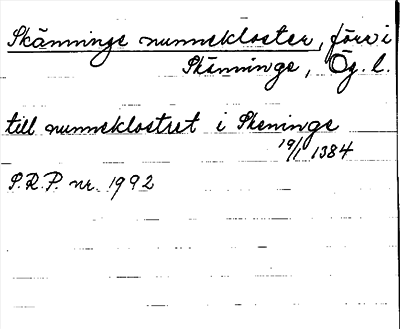 Skänninge nunnekloster, förr i
Skänninge, Ög. l.
till nunneklostret i Skeninge
19/1 1384
S.R.P. nr. 1992